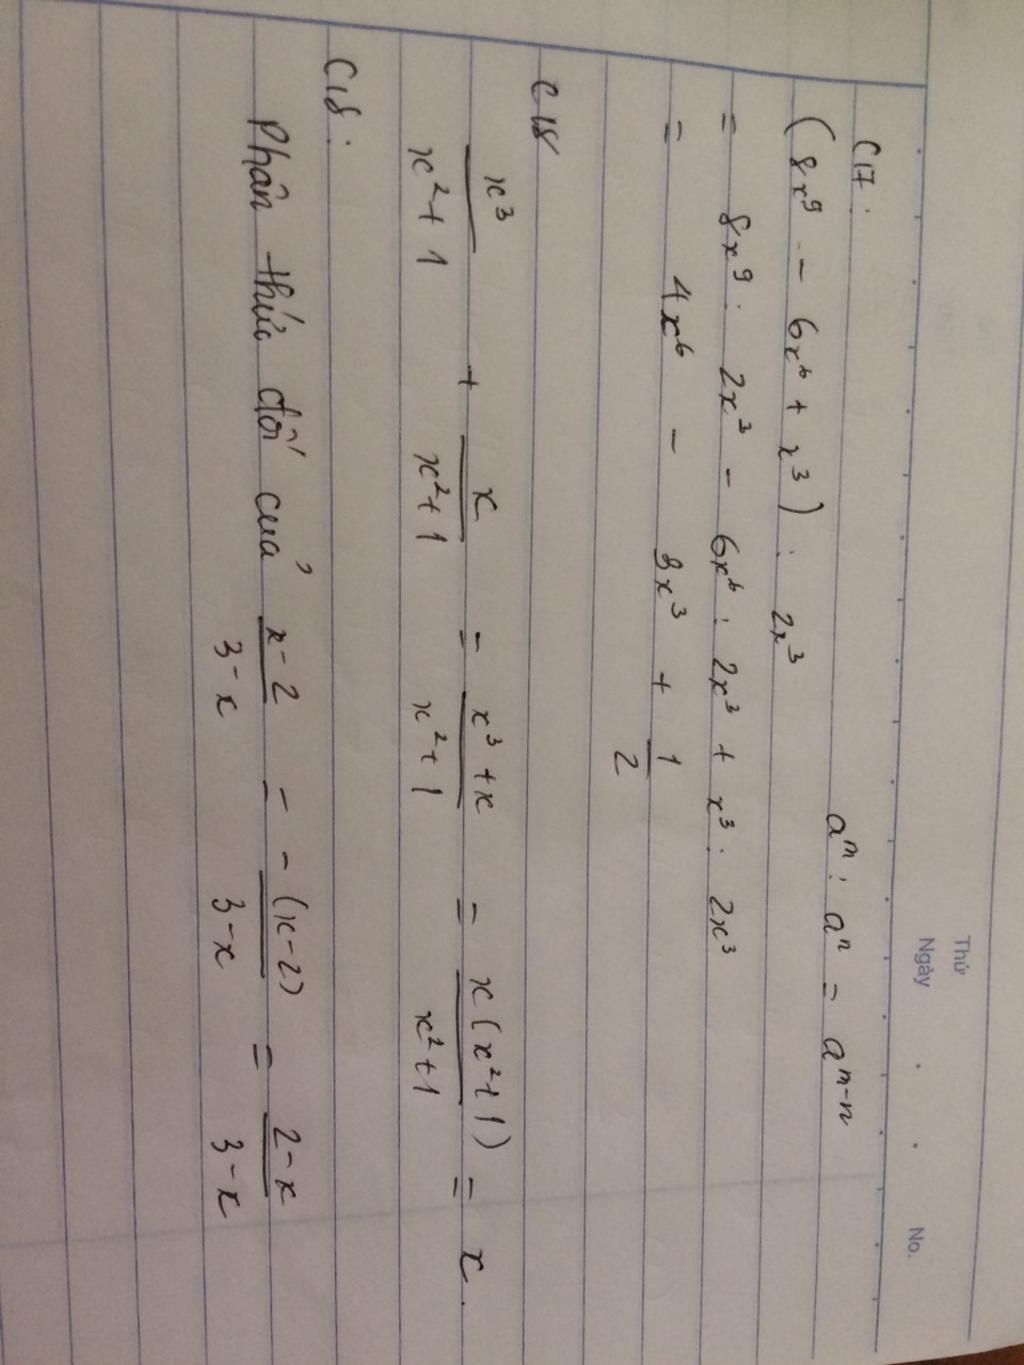 Thứ
Ngày . . No.
C17: aᵐ : aⁿ = aᵐ⁻ⁿ
(8x⁹ - 6x⁶ + x³) : 2x³
= 8x⁹ : 2x³ - 6x⁶ : 2x³ + x³ : 2x³
= 4x⁶ - 3x³ + 1/2
C18
x³/(x²+1) + x/(x²+1) = (x³+x)/(x²+1) = x(x²+1)/(x²+1) = x.
C18:
Phân thức đối của (x-2)/(3-x) = -(x-2)/(3-x) = (2-x)/(3-x)